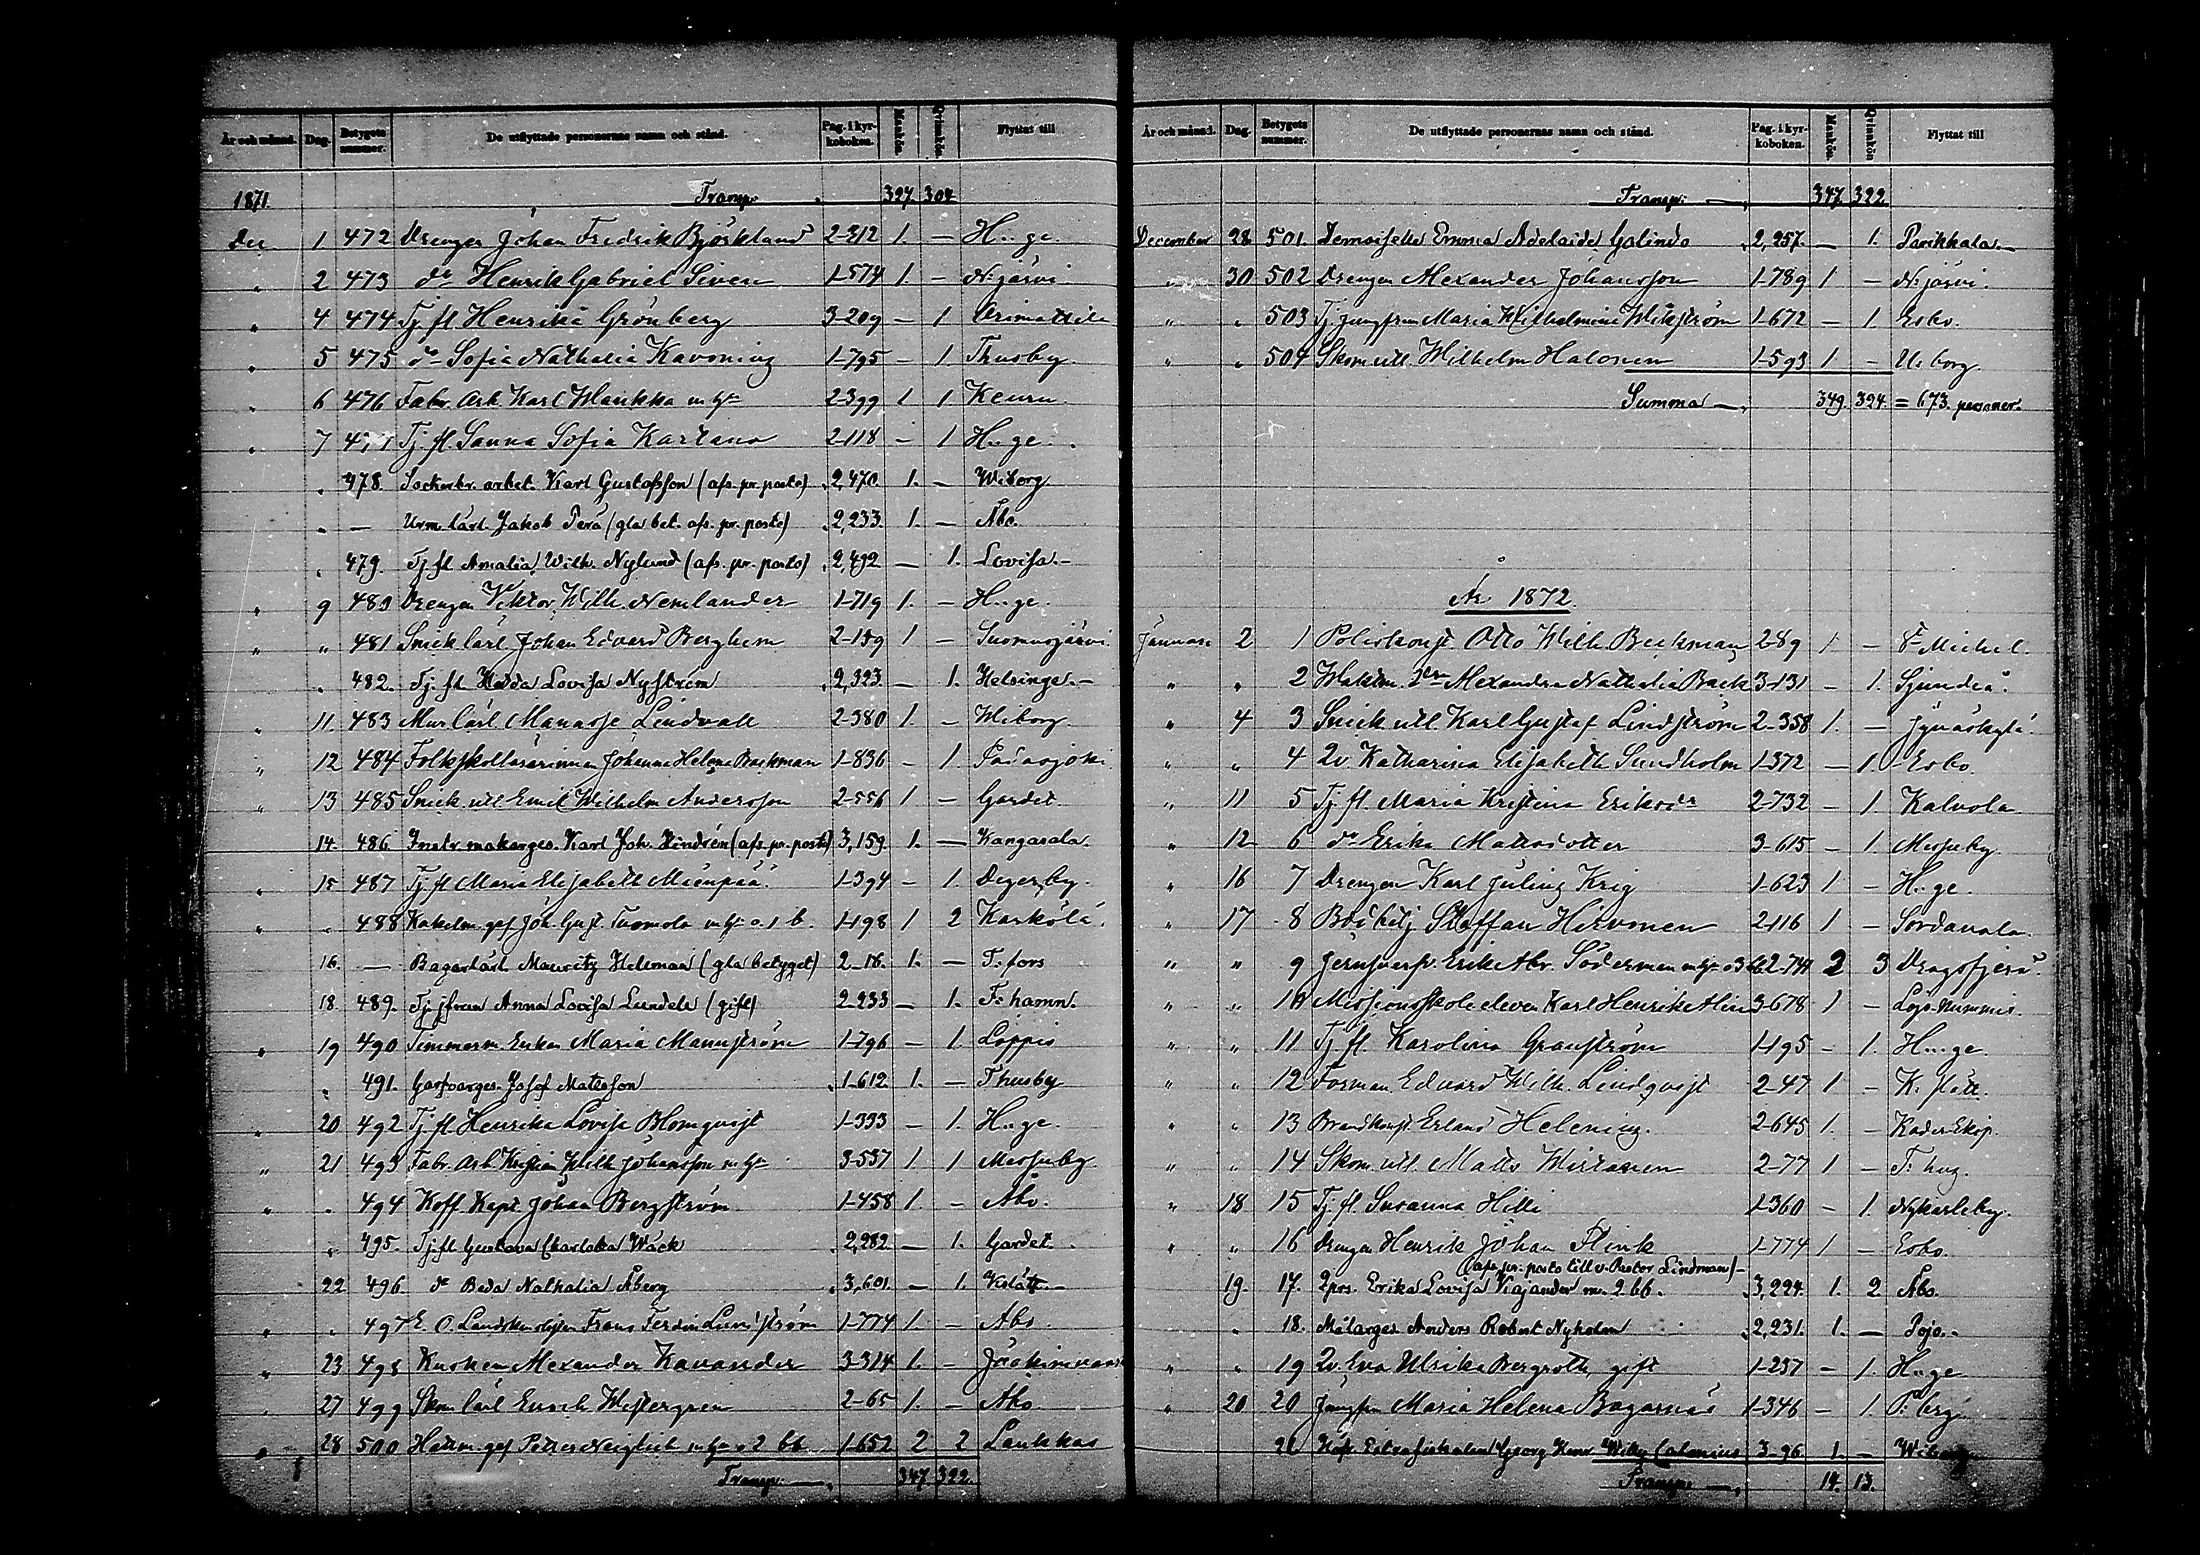 År och månad. Dag. Betygets nummer. De utflyttade personernas namn och stånd. Pag. i kyrkoboken. Mankön. Qvinnkön. Flyttat till
1871. Transp. 327 304
Dec. 1 472 Drengen Johan Fredrik Björklund 2-212 1. — H..ge.
" 2 473 do Henrik Gabriel Siven 1-574 1. — N:järvi.
" 4 474 Tj. fl. Henrika Grönberg 3-209 — 1
" 5 475 do Sofia Nathalia 1-795 — 1. Thusby
" 6 476 Fabr. Arb. Karl m. h. 2-399 1 1 Keuru
" 7 Tj. fl. Sanna Sofia 2-118 — 1 H..ge.
" 478. Sockerbr. arbet. Karl Gustafsson (afs. pr. posto) 2,470. 1. — Wiborg
" — Urm. lärl. Jakob Perä (gla bet. afs. pr. posto) 2,233. 1. — Åbo.
" 479. Tj. fl. Amalia Wilh. Nylund (afs. pr. posto) 2,492 — 1. Lovisa.—
" 9 480 Drengen Viktor Wilh. Nemlander 1-719 1. — H..ge.
" " 481 Snick. lärl. Johan Edvard Berghem 2-159 1 — Suomusjärvi.
" 482. Tj. fl. Hedda Lovisa Nyström 2,323 — 1. Helsinge.—
" 11. 483 Mur. lärl. Manasse Lindvall 2-380 1. — Wiborg
" 12 484 Folkskollärarinnan Johanna Helena Backman 1-836 — 1. Padasjoki
" 13 485 Snick. utl. Emil Wilhelm Andersson 2-556 1 — Gardet.
14. 486. Instr. makarges. Karl Joh. Lindrén (afs. pr. posto) 3,159. 1. — Kangasala.
" 15 487 Tj. fl. Maria Elisabeth Mäenpää 1-394 — 1. Degerby.
" " 488 Kakelm. ges. Joh. Gust. Tuomola m. h. o. 1 b. 1-198 1 2 Kärkölä.
16. — Bagarlärl. Mauritz Hellman (gla betyget) 2-16. 1. — T:fors
18. 489. Tj. jfrun Anna Lovisa Lundell (gift) 2-233 — 1. F:hamn.
" 19 490 Timmerm. Enkan Maria Mannström 1-796 — 1 Loppis
" 491. Garfvarges. Josef Mattsson 1-612. 1. — Thusby
" 20 492 Tj. fl. Henrika Lovisa Blomqvist 1-333 — 1. H..ge.
" 21 493 Fabr. Arb. Kristian Wilh. Johansson m. h. 3-537 1 1 Messuby
" " 494 Koff. Kapt. Johan Bergström 1-458 1. — Åbo.
" 495. Tj. fl. Gustava Charlotta Wäck 2,282 — 1. Gardet.
22 496. do Beda Nathalia Åberg 3,601. — 1. K:slätt.—
" " 497 E. O. Landskanslisten Frans Ferdin. Lundström 1-774 1. — Åbo
" 23 498 Kusken Alexander Kavander 3-314 1. — Joakimvaara
" 27 499 Skom. lärl. Enoch Westergren 2-65 1. — Åbo
" 28 500 Hattm. ges. Petter Neiglick m. h. o. 2 bb. 1-652 2 2 Laukkas
Transp. — 347 322.
År och månad. Dag. Betygets nummer. De utflyttade personernas namn och stånd. Pag. i kyrkoboken. Mankön. Qvinnkön Flyttat till
Transp. — 347 322
December 28 501. Demoiselle Emma Adelaide Galindo 2,257. — 1. Parikkala.—
" 30 502 Drengen Alexander Johansson 1-789 1 — N:järvi.
" " 503 Tj. jungfrun Maria Wilhelmina Wikström 1-672 — 1. Esbo.
" " 504 Skom. utl. Wilhelm Halonen 1-593 1 — Uleborg
Summa — 349. 324. = 673. personer.
År 1872.
Januari 2 1 Poliskonst. Otto Wilh. Beckman 2-89 1 — S:t Michel.
" " 2 Waktm. d:n Alexandra Nathalia Back 3-131 — 1. Sjundeå.
" 4 3 Snick. utl. Karl Gustaf Lindström 2-358 1. — Jyväskylä.
" " 4 Qv. Katharina Elisabeth Sundholm 1-372 — 1. Esbo.
" 11 5 Tj. fl. Maria Kristina Eriksdr 2-732 — 1. Kalvola
" 12 6 do Erika Mattsdotter 3-615 — 1. Messuby.
" 16 7 Drengen Karl Julius Krig 1-623 1 — H..ge.
" 17 8 Steffan Hirvonen 2-116 1 — Sordavala.
" " 9 Erik Abr. Söderman m. h. o. 3 bb. 2-744 2 3 Dragsfjerd.
" " 10 Missionsskoleeleven Karl Henrik Alin 3-678 1 — Lojo-Nummis.
" " 11 Tj. fl. Karolina Granström 1-195 — 1. H..ge.
" " 12 Forman Edvard Wilh. Lindqvist 2-47 1 — K:slätt.
" " 13 Brandkonst. Erland Helenius. 2-645 1. — Kadix Ekip.
" " 14 Skom. utl. Matts Wirtanen 2-77 1 — T:hus.
" 18 15 Tj. fl. Susanna Hilli 1-360 — 1. Nykarleby.
" " 16 Drengen Henrik Johan Flink 1-774 1 — Esbo.
(afs. pr. posto till v. Pastor Lindman)—
19. 17. Qprs. Erika Lovisa Kajander m. 2 bb. 3,224. 1. 2 Åbo.
" 18. Målarges. Anders Robert Nyholm 2,231. 1. — Pojo.—
" " 19 Qv. Eva Ulrika Bergroth, gift 1-257 — 1. H..ge
" 20 20 Jungfrun Maria Helena Bagarnäs 1-346 — 1. P:berg
21 Georg Henr. Willy Calonius 3-96 1. — Wiborg
Transp. — 14. 13.